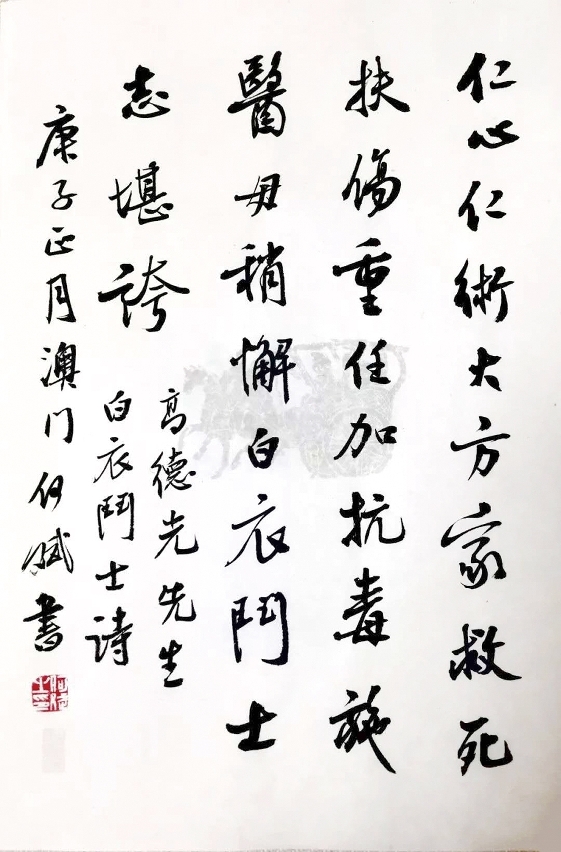 仁心仁術大方家救死
扶傷重任加抗毒施
醫毋稍懈白衣鬥士
志堪誇
高德光先生
白衣鬥士詩
庚子正月澳门何斌書